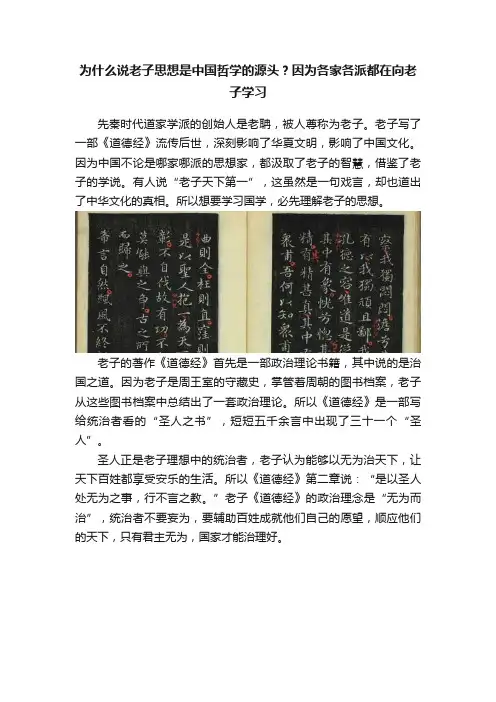 为什么说老子思想是中国哲学的源头？因为各家各派都在向老
子学习
先秦时代道家学派的创始人是老聃，被人尊称为老子。老子写了
一部《道德经》流传后世，深刻影响了华夏文明，影响了中国文化。
因为中国不论是哪家哪派的思想家，都汲取了老子的智慧，借鉴了老
子的学说。有人说“老子天下第一”，这虽然是一句戏言，却也道出
了中华文化的真相。所以想要学习国学，必先理解老子的思想。
察我獨悶悶澹兮
有以我獨頑且鄙我
孔德之容惟道是從
其中有象恍兮惚其
精有精甚真其中
衆甫吾何以知衆甫
曲則全枉則直窪則
是以聖人抱一為天
彰不自伐故有功不
莫能與之争古之所
而歸之
希言自然飄風不終
老子的著作《道德经》首先是一部政治理论书籍，其中说的是治
国之道。因为老子是周王室的守藏史，掌管着周朝的图书档案，老子
从这些图书档案中总结出了一套政治理论。所以《道德经》是一部写
给统治者看的“圣人之书”，短短五千余言中出现了三十一个“圣
人”。
圣人正是老子理想中的统治者，老子认为能够以无为治天下，让
天下百姓都享受安乐的生活。所以《道德经》第二章说：“是以圣人
处无为之事，行不言之教。”老子《道德经》的政治理念是“无为而
治”，统治者不要妄为，要辅助百姓成就他们自己的愿望，顺应他们
的天下，只有君主无为，国家才能治理好。